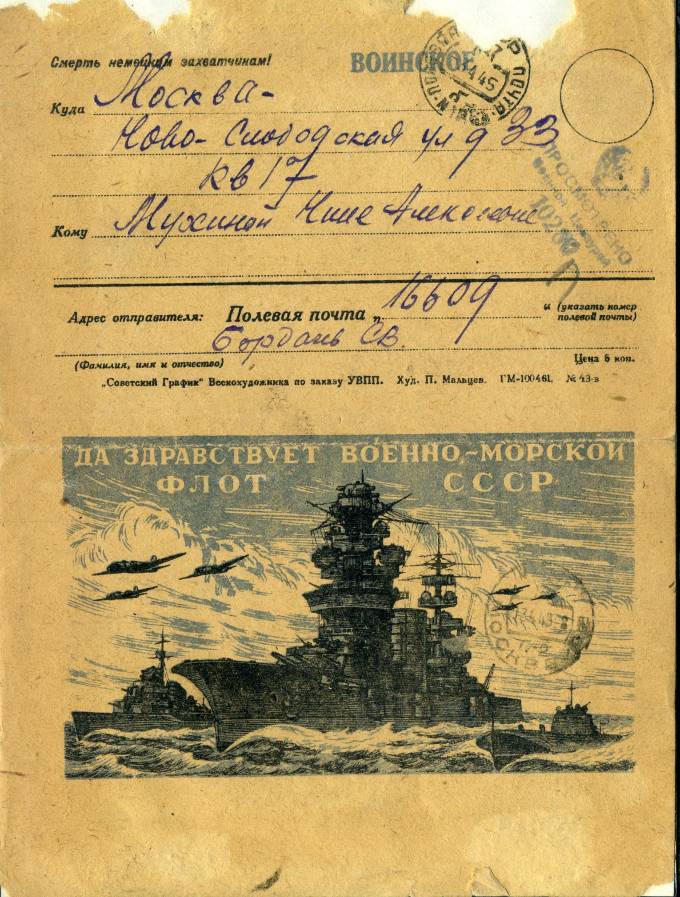 Смерть немецким захватчинам!
ВОИНСКОЕ
ПОЧТА
Куда Москва-
Ново-Слободская ул д 33
кв 17
ПРОСМОТРЕНО
Военной Цензурой
Кому Мухиной Нине Алексеевне
Адрес отправителя: Полевая почта „ 16609 " (указать номер полевой почты)
Бордань С.В.
(Фамилия, имя и отчество) Цена 5 коп.
„Советский График" Всекохудожника по заказу УВПП. Худ. П. Мальцев. ГМ-100461. № 43-в
ДА ЗДРАВСТВУЕТ ВОЕННО-МОРСКОЙ
ФЛОТ СССР
МОСКВА